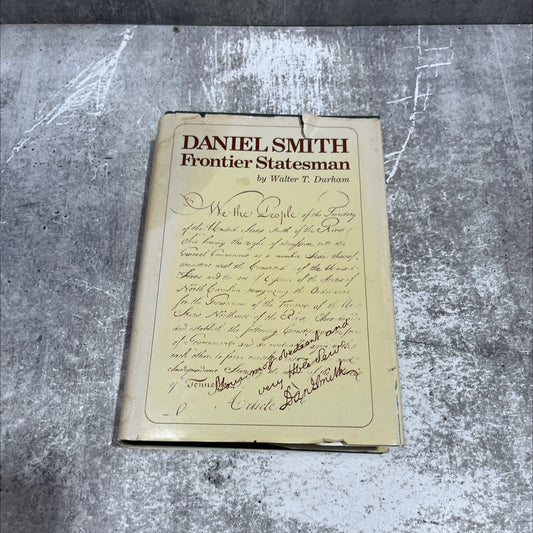 DANIEL SMITH
Frontier Statesman
by Walter T. Durham
We the People of the Territory
of the United States South of the River
Ohio having the right of admission into the
General Government as a member State thereof,
consistent with the Constitution of the United
States and the act of Cession of the State of
North Carolina, recognizing the Ordinance
for the Government of the Territory of the
States Northwest of the River Ohio
and establish the following Constitution
of Government and do mutually agree with
each other to form
Independent State
of Tenne
Article
Your most obedient and
very Hble Serv
Dan Smith